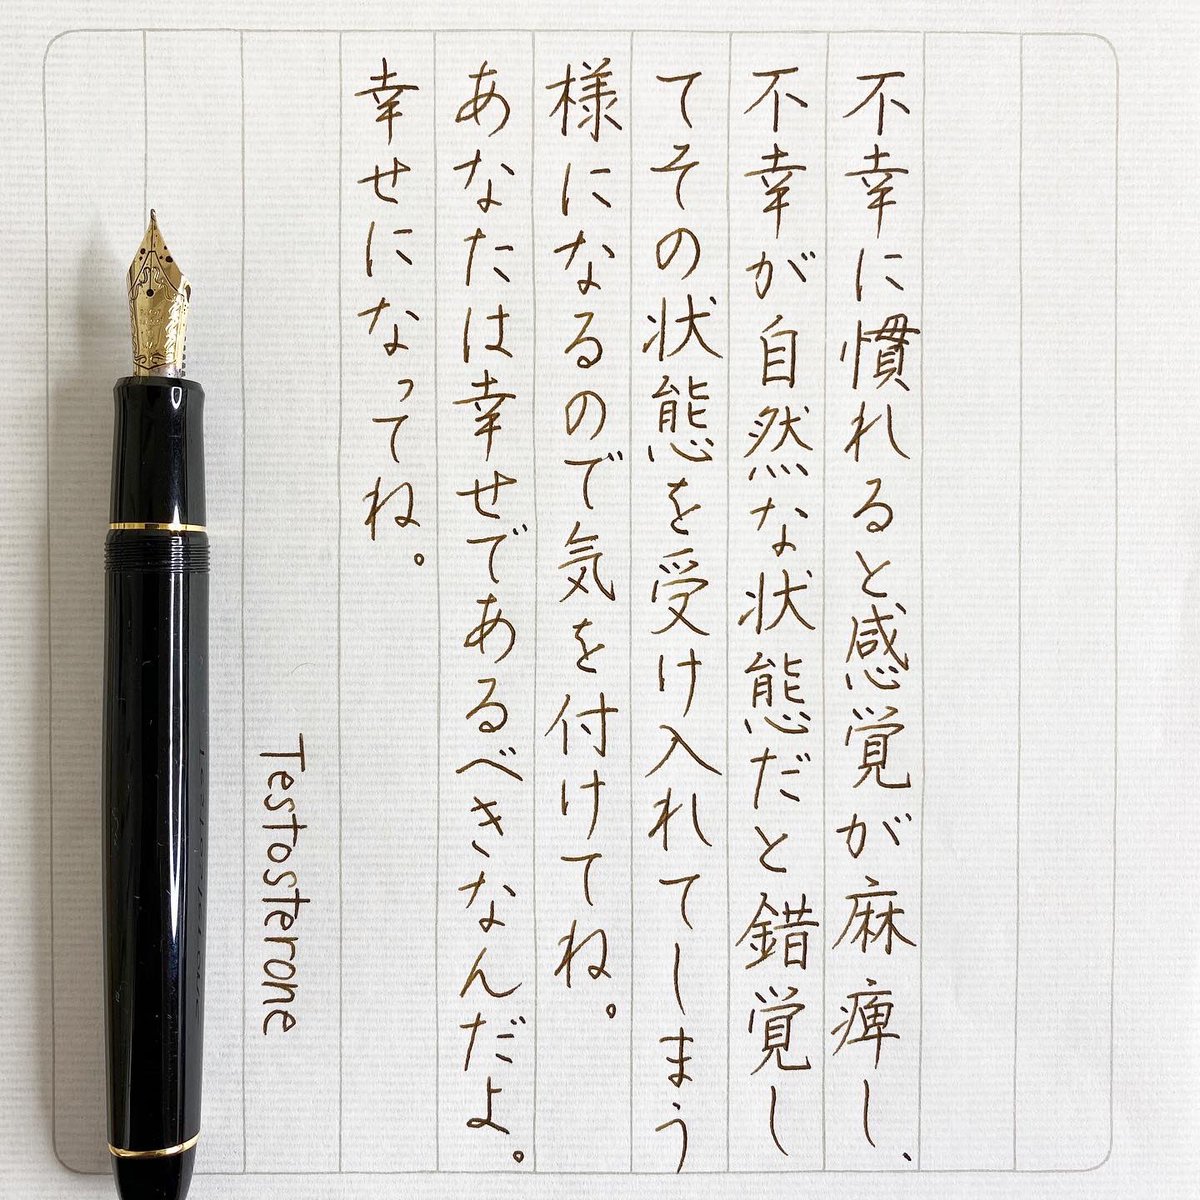 不幸に慣れると感覚が麻痺し、
不幸が自然な状態だと錯覚し
てその状態を受け入れてしまう
様になるので気を付けてね。
あなたは幸せであるべきなんだよ。
幸せになってね。
Testosterone